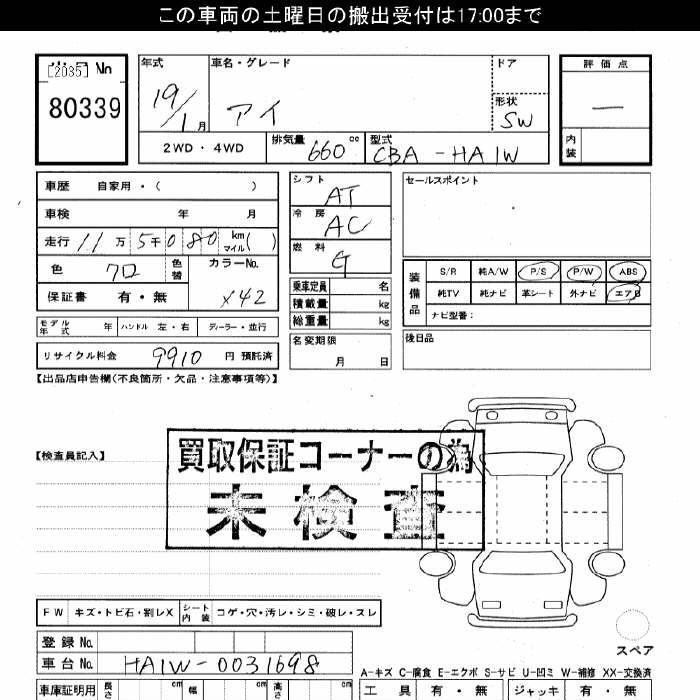 この車両の土曜日の搬出受付は17:00まで
[2035] No
80339
年式
19/1月
車名・グレード
アイ
ドア
形状
SW
評価点
―
内装
2WD・4WD
排気量
660 cc
型式
CBA-HA1W
車歴 自家用・( )
車検 年 月
走行 11万 5千 0 8 0 km マイル( )
色 クロ
色替
カラーNo.
X42
保証書 有・無
モデル年式 年 ハンドル 左・右 ディーラー・並行
リサイクル料金 9910 円 預託済
シフト
AT
冷房
AC
燃料
G
乗車定員 名
積載量 kg
総重量 kg
名変期限
月 日
セールスポイント
装備品
S/R 純A/W P/S P/W ABS
純TV 純ナビ 革シート 外ナビ エアB
ナビ型番:
後日品
【出品店申告欄(不良箇所・欠品・注意事項等)】
【検査員記入】
買取保証コーナーの為
未検査
FW キズ・トビ石・割レX シート内装 コゲ・穴・汚レ・シミ・破レ・スレ
登録 No.
車台 No. HA1W-0031698
スペア
A-キズ C-腐食 E-エクボ S-サビ U-凹ミ W-補修 XX-交換済
車庫証明用 長さ cm 幅 cm 高さ cm
工具 有・無 ジャッキ 有・無